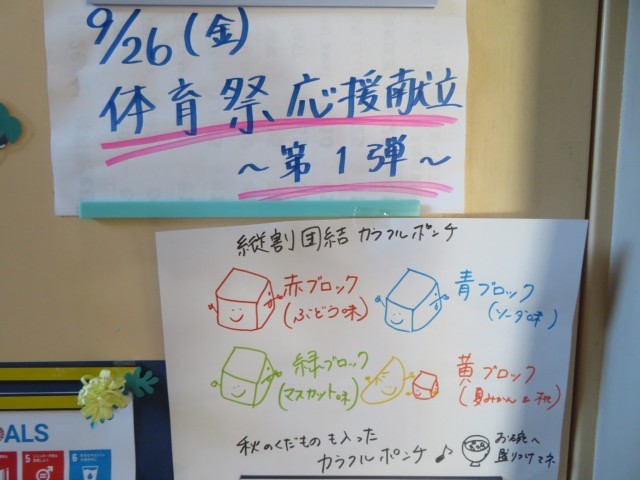 9/26(金)
体育祭応援献立
～第1弾～
縦割団結カラフルポンチ
赤ブロック
(ぶどう味)
青ブロック
(ソーダ味)
緑ブロック
(マスカット味)
黄ブロック
(夏みかん&桃)
秋のくだものも入った
カラフルポンチ♪
お椀へ
盛りつけてネ
ALS
5
6